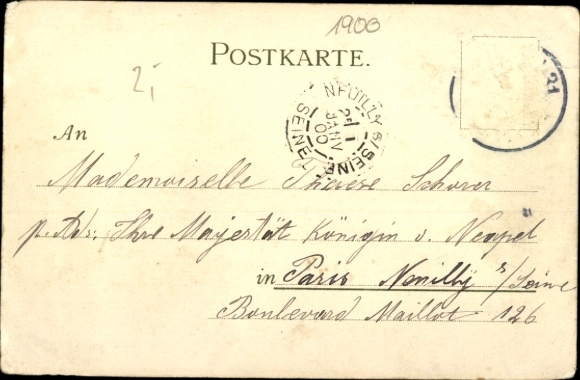 1900
POSTKARTE.
2,
21
NEUILLY S/SEINE
25
JANV
00
SEINE
An
Mademoiselle Therese Schorer
p. Ads: Ihre Majestät Königin v. Neapel
in Paris Neuilly s/Seine
Boulevard Maillot 126